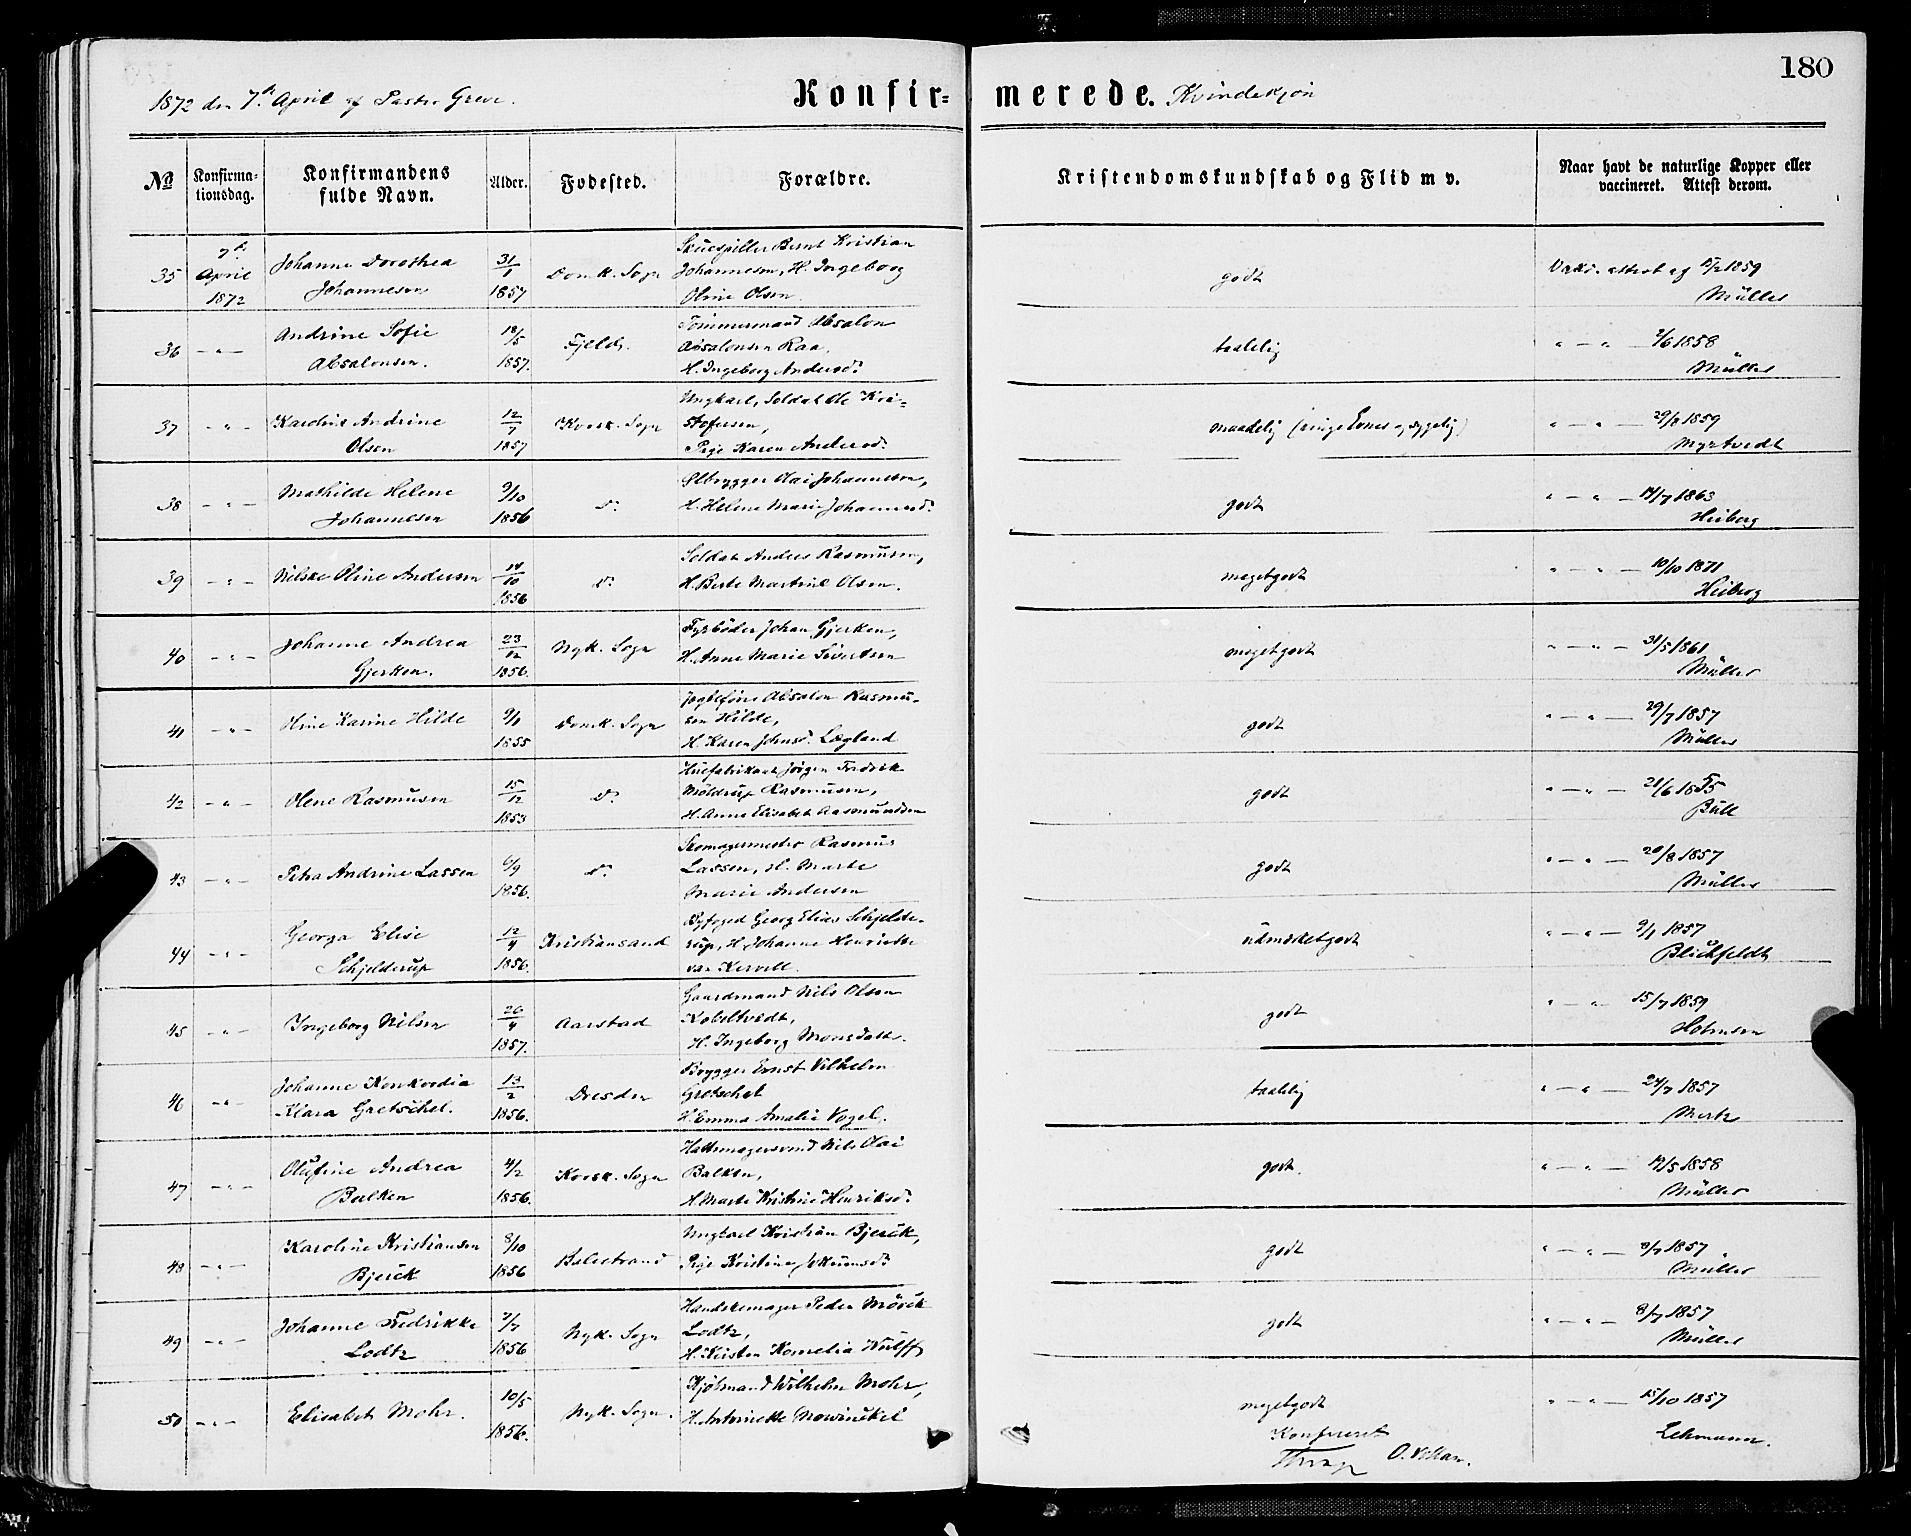 180
1872 den 7de April af Pastor Greve.
Konfir-merede. Kvindekjøn
No
Konfirma-tionsdag.
Konfirmandens fulde Navn.
Alder.
Fødested.
Forældre.
Kristendomskundskab og Flid m v.
Naar havt de naturlige Kopper eller vaccineret. Attest derom.
35 7de April 1872 Johanne Dorothea Johannesen 31/1 1857 Domk. Sogn
Skuespiller Bernt Kristian
Johannesen, H. Ingeborg
Oline Olsen.
godt
attest af 1859
Müller
36 - " - Andrine Sofie Absalonsen. 18/5 1857. Fjeld
Tømmermand Absalon
Absalonsen Raa,
H. Ingeborg Andersd:
taalelig
" - " - 2/6 1858
Müller
37 - " - Karoline Andrine Olsen 12/7 1857 Korsk. Sogn
Ungkarl, Soldat Ole Kri-
stofersen,
Pige Karen Andersd:
maadelig (ringe Evner og sygelig)
" - " - 29/8 1859
Myrtvedt
38 - " - Mathilde Helene Johannesen 9/10 1856 do
Ølbrygger Olai Johannesen,
H. Helene Marie Johannesd:
godt
" - " - 14/7 1863
Heiberg
39 - " - Nilske Oline Andersen 14/10 1856 do
Soldat Anders Rasmusen,
H. Berte Martine Olsen.
megetgodt
" - " - 10/10 1871
Heiberg
40 - " - Johanne Andrea Gjerken. 23/12 1856. Nyk. Sogn
Fyrbøder Johan Gjerken,
H. Anne Marie Sivertsen
megetgodt
" - " - 31/5 1861
Müller
41 - " - Oline Karine Hilde 9/1 1855 Domk. Sogn
Jagtefører Absalon Rasmu-
sen Hilde,
H. Karen Johnsd. Lægland
godt
" - " - 29/7 1857
Müller
42 - " - Olene Rasmusen 15/12 1853 do
Huefabrikant Jørgen Fredrik
Møldrup Rasmusen,
H. Anne Elisabet Aasmundsen
godt
" - " - 21/6 1855
Büll
43 - " - Petra Andrine Lassen 6/9 1856. do
Skomagermester Rasmus
Lassen, H. Marte
Marie Andersen
godt
" - " - 20/8 1857
Müller
44 - " - Georga Elise Schjelderup 12/4 1856. Kristiansand
Byfoged Georg Elias Schjelde-
rup, H. Johanne Henriette
van Kervell.
udmærketgodt
" - " - 9/1 1857
Blichfeldt
45 - " - Ingeborg Nilsen 26/4 1857. Aarstad
Gaardmand Nils Olsen
Kobeltvedt,
H. Ingeborg Monsdatter.
godt
" - " - 15/7 1859
46 - " - Johanne Konkordia Klara Gretschel. 13/2 1856. Dresden
Brygger Ernst Vilhelm
Gretschel
H. Emma Amalia Vogel.
taalelig
" - " - 24/7 1857
47 - " - Olufine Andrea Balken 4/2 1856. Korsk. Sogn
Hattemagersvend Nils Olai
Balken,
H. Marte Kristine Henriksd:
godt.
" - " - 19/5 1858
Müller
48 - " - Karoline Kristiansen Bjerck 8/10 1856 Balestrand
Ungkarl Kristian Bjerck,
Pige Kristine
godt
" - " - 8/7 1857
Müller
49 - " - Johanne Fredrikke Lodtz 2/7 1856 Nyk. Sogn
Handskemager Peder Mörck
Lodtz,
H. Kirsten Kornelia Wulff
godt
" - " - 8/7 1857
Müller
50 - " - Elisabet Mohr. 10/5 1856. Nyk. Sogn.
Kjøbmand Wilhelm Mohr,
H. Antoinette Mowinckel
megetgodt
" - " - 15/10 1857
Lehmann.
Konfereret